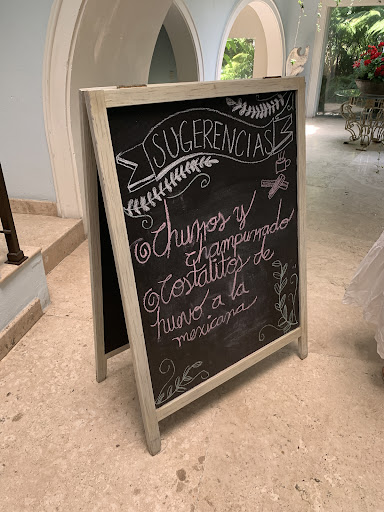 SUGERENCIAS
Churros y
champurrado
Costalitos de
huevo a la
mexicana